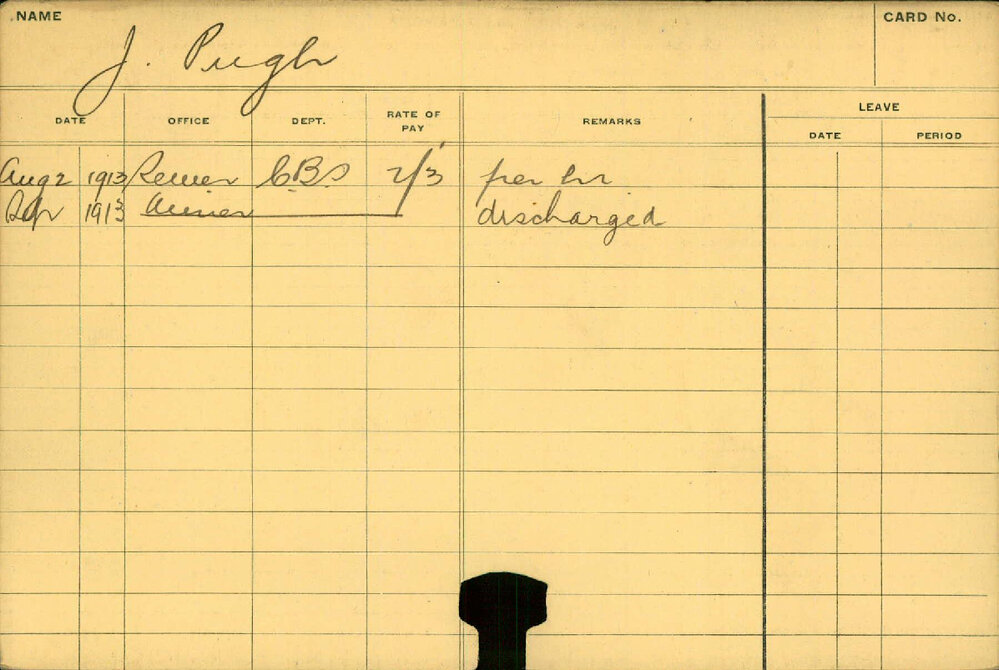 NAME
CARD No.
J. Pugh
DATE OFFICE DEPT. RATE OF PAY REMARKS LEAVE
DATE PERIOD
Aug 2 1913 C.B.S 2/3 per hr
Sep 1913 discharged